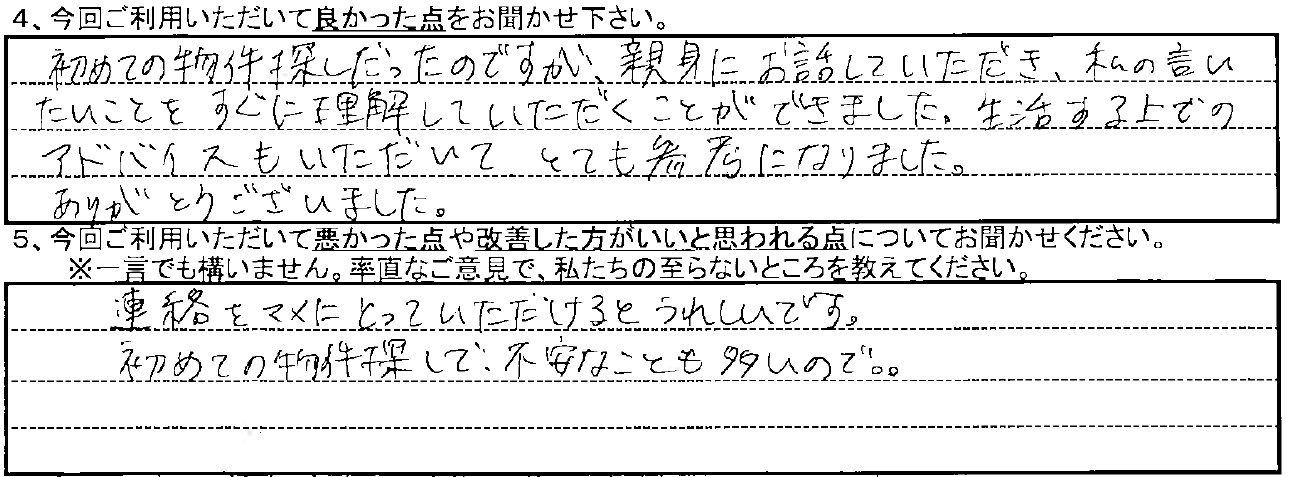 4、今回ご利用いただいて良かった点をお聞かせ下さい。
初めての物件探しだったのですが、親身にお話していただき、私の言い
たいことをすぐに理解していただくことができました。生活する上での
アドバイスもいただいて とても参考になりました。
ありがとうございました。
5、今回ご利用いただいて悪かった点や改善した方がいいと思われる点についてお聞かせください。
※一言でも構いません。率直なご意見で、私たちの至らないところを教えてください。
連絡をマメにとっていただけるとうれしいです。
初めての物件探しで、不安なことも多いので。。